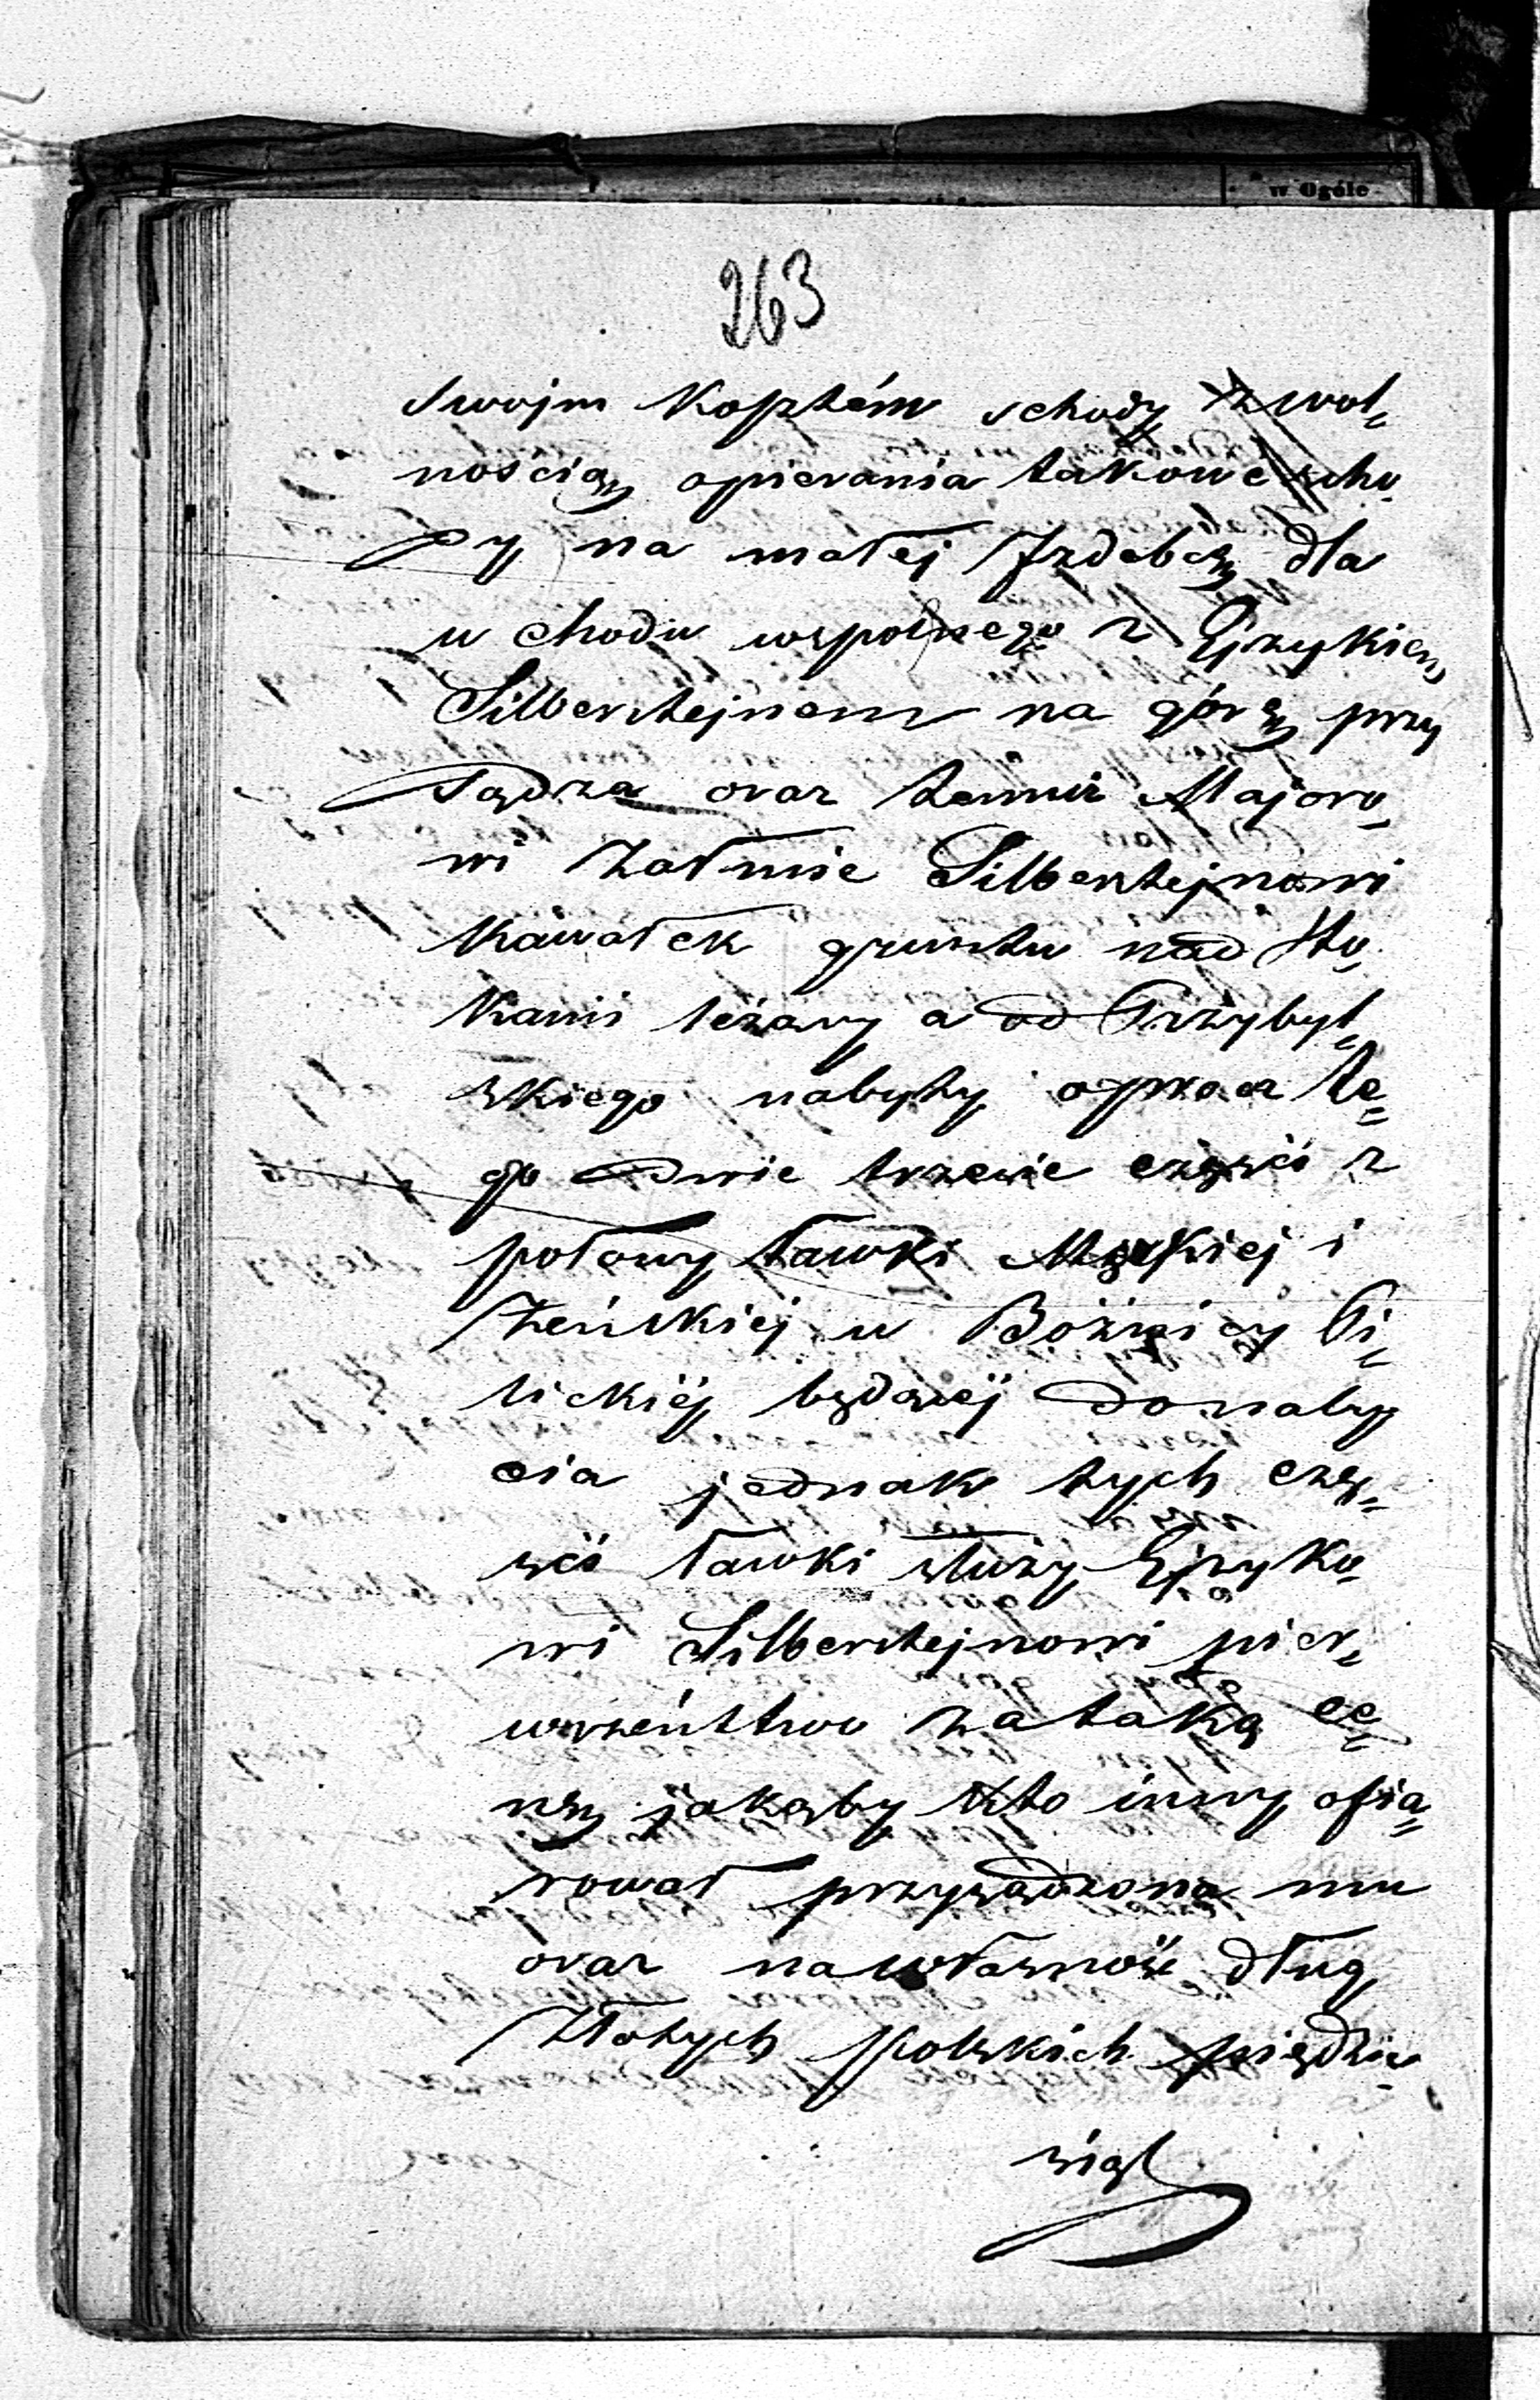 w Ogóle
263
swojm Kosztem schody z wol„
nością opierania takowe scho„
dy na małej Izdebcę dla
u chodu wspolnego z Ejzykiem
Silbersztejnem na górę przy
sądza oraz temuż Majoro„
wi Załmie Silbersztejnowi
Kawałek gruntu nad Sto„
kami leżący a od Przybył„
skiego nabyty oprocz te„
go dwie trzecie części z
połowy ławki Męzkiej i
Żeńskiej w Bożnicy Pi„
lickiéj będącéj do naby
cia jednak tych czę„
ści ławki służy Ejzyko„
wi Silbersztejnowi pier„
wszeństwo za taką ce„
nę jakąby kto inny ofia„
rował przysądzona mu
oraz na własność dług
Złotych polskich pięćdzie„
siąt